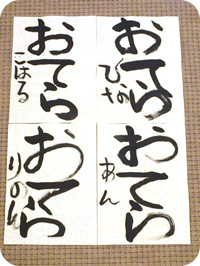 おてら
ひな
おてら
こはる
おてら
あん
おてら
りのん